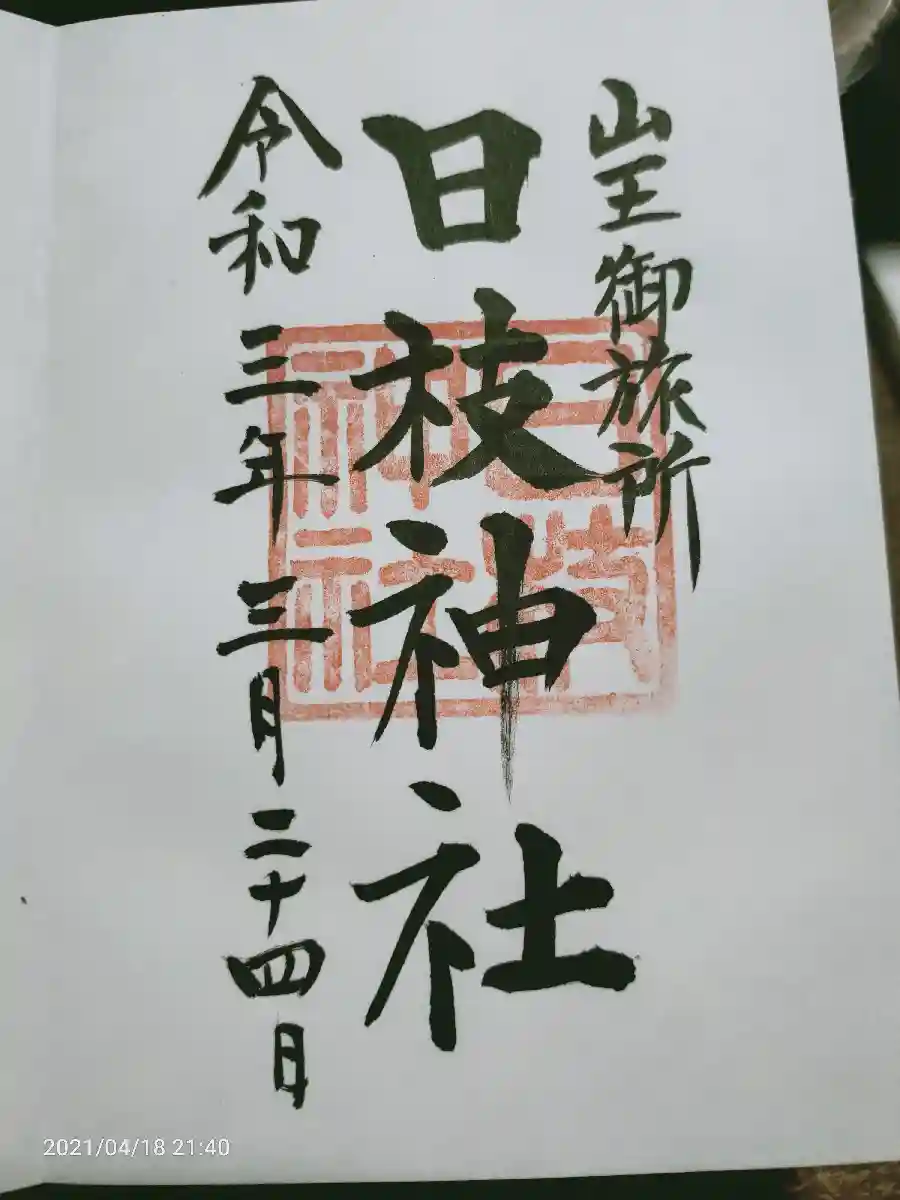 山王御旅所
日枝神社
令和三年三月二十四日
日枝神社
2021/04/18 21:40